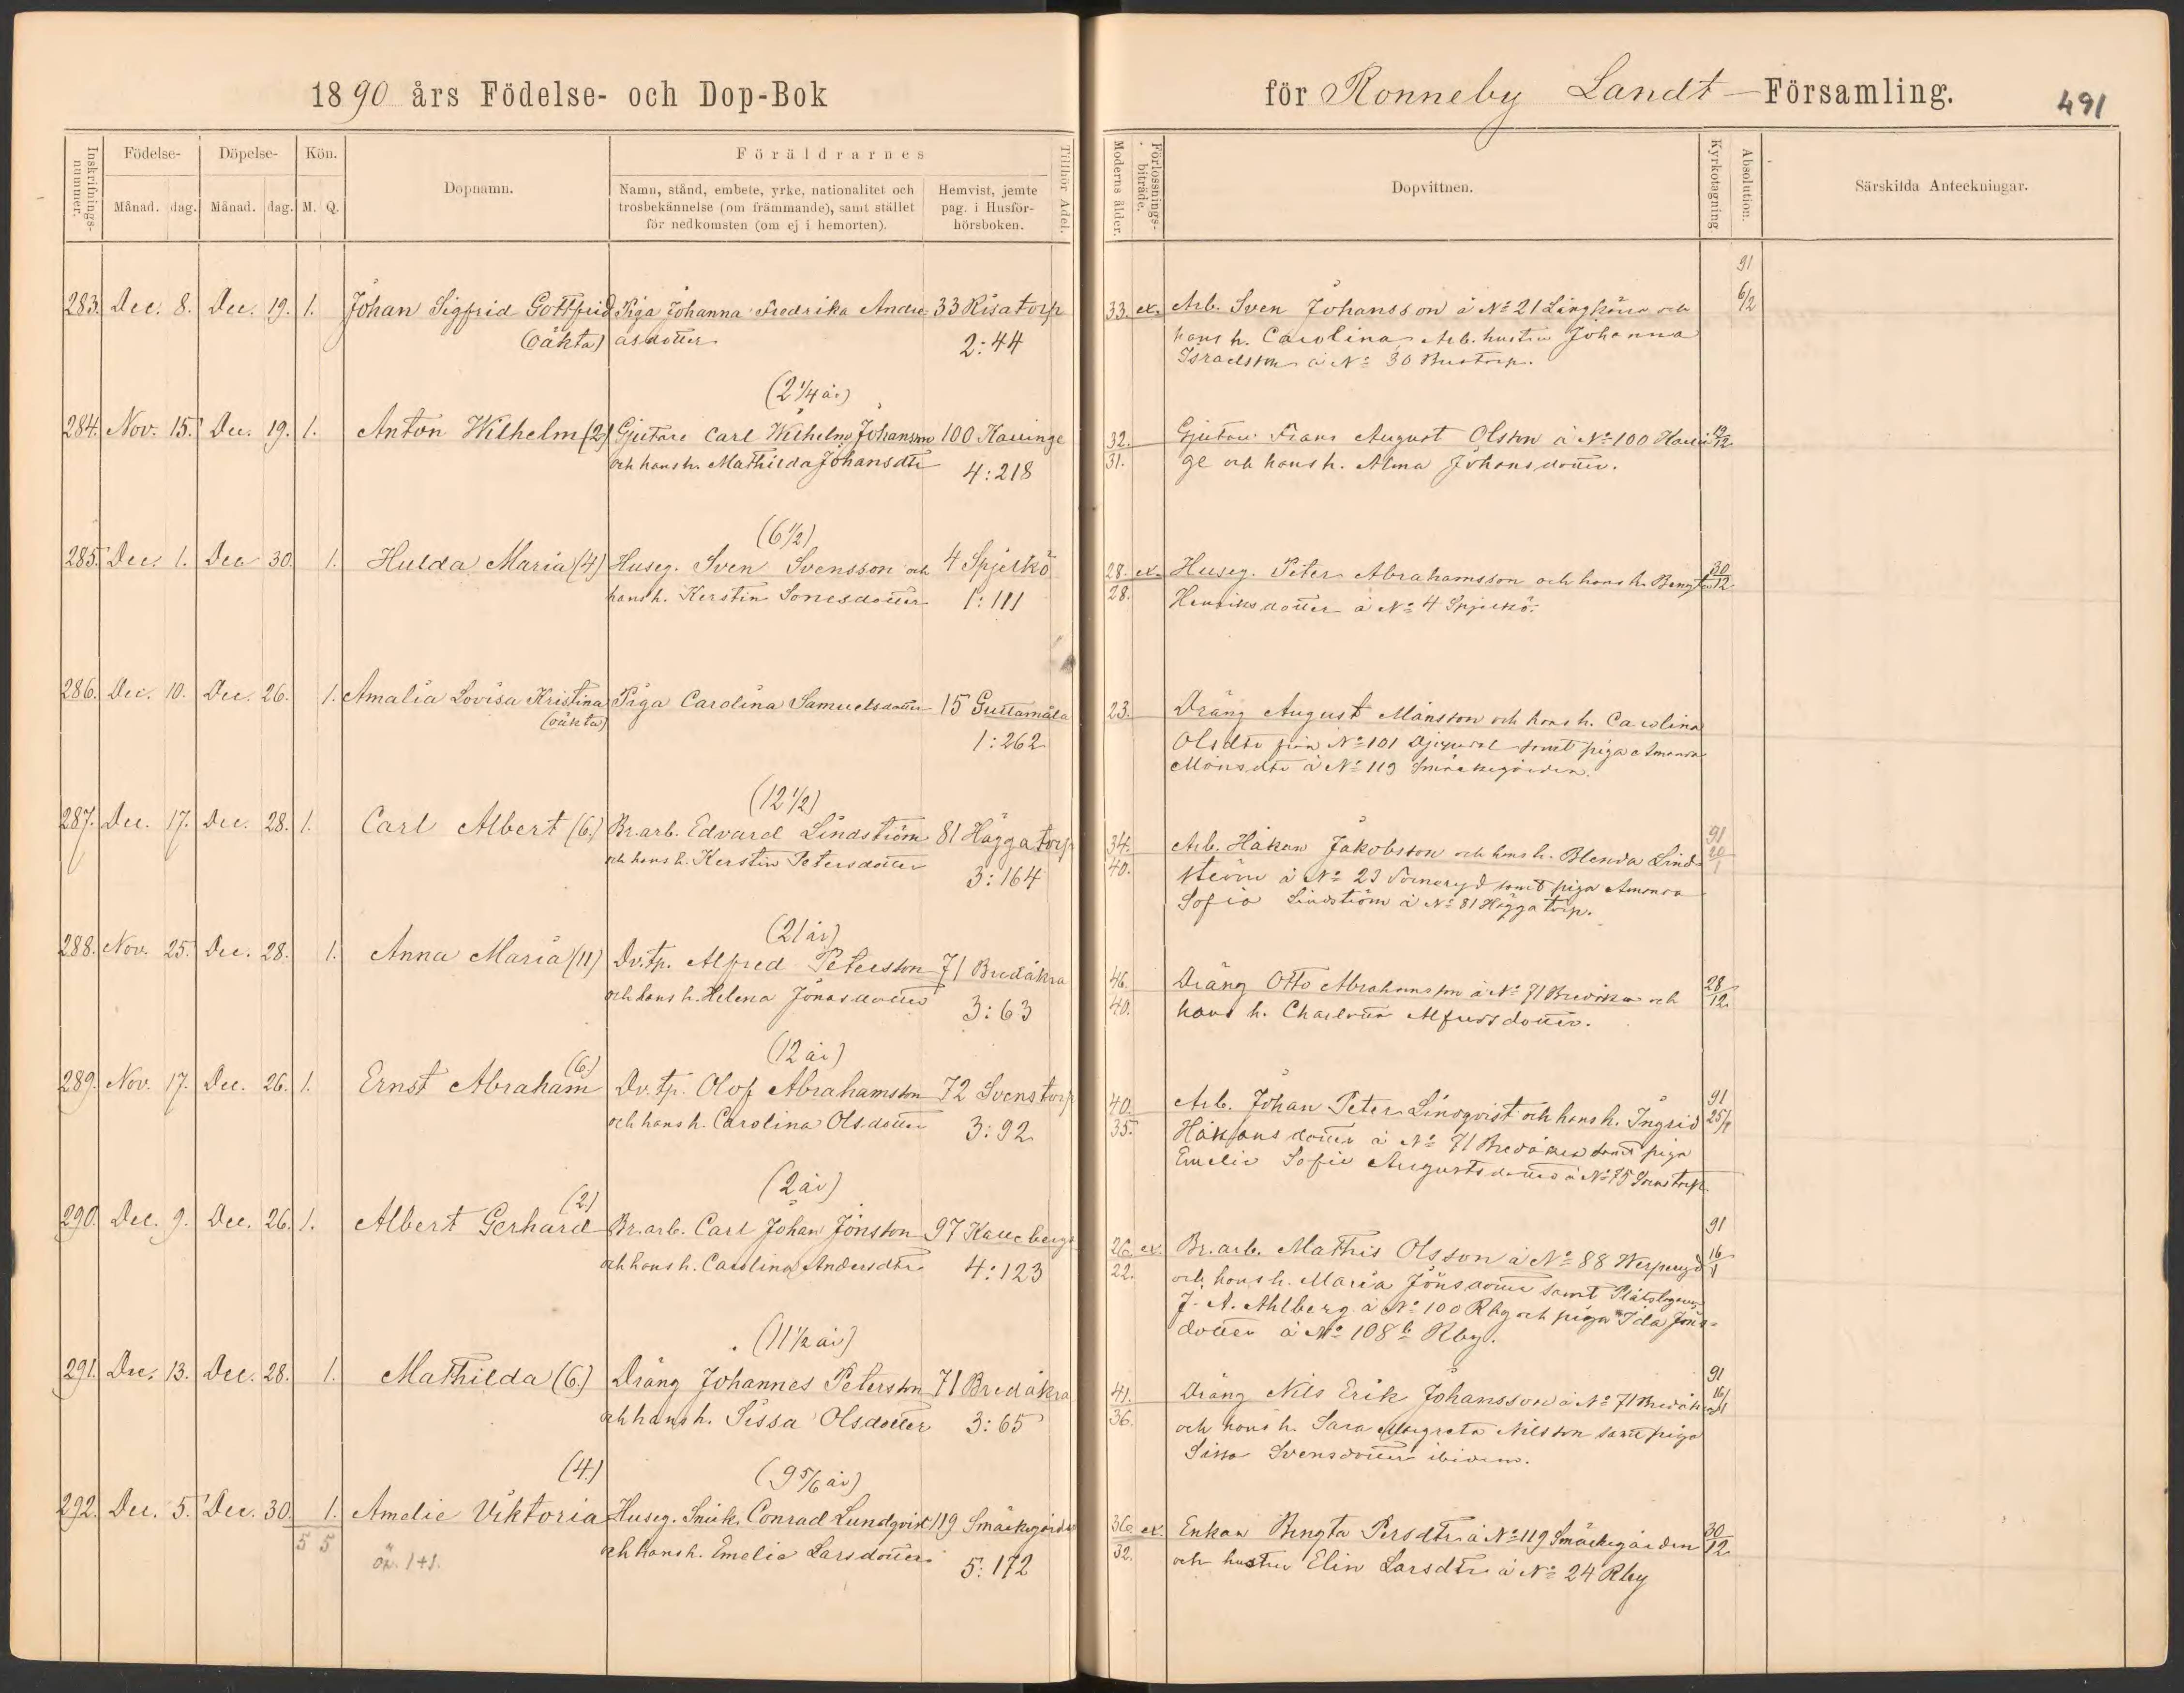 1890 års Födelse- och Dop-Bok
för Ronneby Landt-Församling.
491
Inskrifnings-nummer.
Födelse-
Månad. dag.
Döpelse-
Månad. dag.
Kön.
M. Q.
Dopnamn.
Föräldrarnes
Namn, stånd, embete, yrke, nationalitet och
trosbekännelse (om främmande), samt stället
för nedkomsten (om ej i hemorten).
Hemvist, jemte
pag. i Husför-
hörsboken.
Tillhör Adel.
Moderns ålder.
Förlossnings-biträde.
Dopvittnen.
Kyrkotagning.
Absolution.
Särskilda Anteckningar.
283. Dec. 8. Dec. 19. 1. Johan Sigfrid Gottfrid Piga Johanna Fredrika Andre- 33 Risatorp
(oäkta) asdotter 2:44
33. ex. Arb. Sven Johansson å No 21 och 91 6/2
hans h. Carolina, Arb. hustru Johanna
Israelsson å No 30 Bustorp.
(2 1/4 år)
284. Nov. 15. Dec. 19. 1. Anton Wilhelm (2) Gjutare Carl Wilhelm Johansson 100 Kallinge
och hans h. Mathilda Johansdtr 4:218
32. Gjutare Frans August Olsson å No 100 Kallin 19/12
31. ge och hans h. Alma Johansdotter.
(6 1/2)
285. Dec. 1. Dec 30. 1. Hulda Maria (4) Huseg. Sven Svensson och 4 Spjelkö
hans h. Kerstin Sonesdotter 1:111
28. ex. Huseg. Peter Abrahamsson och hans h. Bengta 30/12
28. Henriksdotter å No 4 Spjelkö.
286. Dec. 10. Dec. 26. 1. Amalia Lovisa Kristina Piga Carolina Samuelsdotter 15 Guttamåla
(oäkta) 1:262
23. Dräng August Månsson och hans h. Carolina
Olsdtr från No 101 samt piga Amanda
Månsdtr å No 119 Småckegården.
(12 1/2)
287. Dec. 17. Dec. 28. 1. Carl Albert (6.) Br.arb. Edvard Lindström 81 Häggatorp
och hans h. Kerstin Petersdotter 3:164
34. Arb. Håkan Jakobsson och hans h. Blenda Lind- 91 20/1
40. ström å No 23 samt piga Amanda
Sofia Lindström å No 81 Häggatorp.
(21 år)
288. Nov. 25. Dec. 28. 1. Anna Maria (11) Dv.tp. Alfred Petersson 71 Bredåkra
och hans h. Helena Jonasdotter 3:63
46. Dräng Otto Abrahamsson å No 71 Bredåkra och 28/12
40. hans h. Charlotta Alfredsdotter.
(12 år)
289. Nov. 17. Dec. 26. 1. Ernst Abraham (6.) Dv.tp. Olof Abrahamsson 72 Svenstorp
och hans h. Carolina Olsdotter 3:92
40. Arb. Johan Peter Lindqvist och hans h. Ingrid 91 25/1
35. Håkansdotter å No 71 Bredåkra samt piga
Emelie Sofie Augustsdotter å No 75 Svenstorp.
(2 år)
290. Dec. 9. Dec. 26. 1. Albert Gerhard (2) Br.arb. Carl Johan Jönsson 97 Kalleberga
och hans h. Carolina Andersdtr 4:123
26. ex. Br.arb. Mathis Olsson å No 88 91 16/1
22. och hans h. Maria Jönsdotter samt Plåtslagaren
J. A. Ahlberg å No 100 Rby och piga Ida Jöns-
dotter å No 108 b Rby.
(11 1/2 år)
291. Dec. 13. Dec. 28. 1. Mathilda (6.) Dräng Johannes Petersson 71 Bredåkra
och hans h. Sissa Olsdotter 3:65
41. Dräng Nils Erik Johansson å No 71 Bredåkra 91 16/1
36. och hans h. Sara Margreta Nilsson samt piga
Sissa Svensdotter ibidem.
(4.) (9 5/6 år)
292. Dec. 5. Dec. 30. 1. Amelie Viktoria Huseg. Snick. Conrad Lundqvist 119 Småckegården
och hans h. Emelia Larsdotter 5:172
36. ex. Enkan Bengta Persdtr å No 119 Småckegården 30/12
32. och hustru Elin Larsdtr å No 24 Rby
5 5
oä. 1+1.